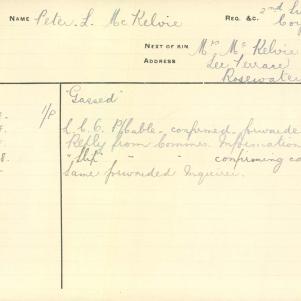 NAME Peter. L. McKelvie REG. &C. 2nd
NEXT OF KIN Mrs McKelvie
ADDRESS Lee Terrace
Rosewater
"Gassed"
1/P
C.C.G. confirmed. forwarded
Reply from Commrs. Information
8. " " confirming
Same forwarded Inquirer.